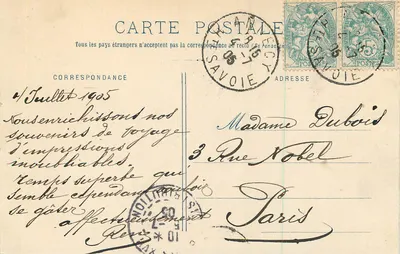 CARTE POSTALE
Tous les pays étrangers n'acceptent pas la correspondance au recto
CORRESPONDANCE
ADRESSE
ANNECY
SAVOIE
4 Juillet 1905
Nous enrichissons nos
souvenirs de voyage
d'impressions
inoubliables.
Temps superbe qui
semble cependant vouloir
se gâter.
affectueusement
Madame Dubois
3 Rue Nobel
Paris
DISTRIBUTION